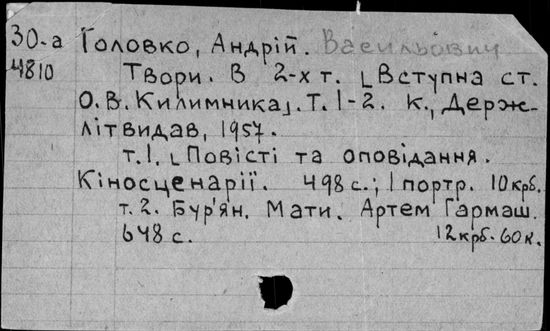 30-а Головко, Андрій. Васильович
4810 Твори. В 2-х т. [Вступна ст.
О.В. Килимника]. Т. 1-2. К., Держ-
літвидав, 1957.
т.1. [Повісті та оповідання.
Кіносценарії. 498 с.; 1 портр. 10 крб.
т. 2. Бур'ян. Мати. Артем Гармаш.
648 с. 12 крб. 60 к.